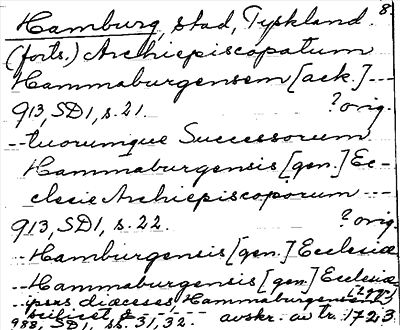 Hamburg, stad, Tyskland. 8.
(forts.) Archiepiscopatum
Hammaburgensem [ack.] ---
913, SD1, s. 21. ?orig.
--tuorumque Successorum
Hammaburgensis [gen.] Ec-
clesie Archiepiscoporum ---
913, SD1, s. 22. ?orig.
--Hamburgensis [gen.] Ecclesiæ
--Hammaburgensis [gen.] Ecclesiæ
ipsa diæceses Hammaburgensem
scilicet, & -----
988, SD1, ss. 31, 32. avskr. av tr. 1723